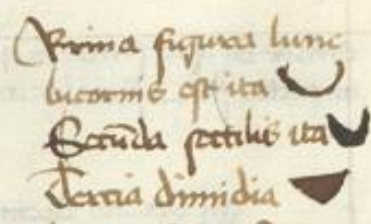 Prima figura lune
bicornis est ita
Secūda sectilis ita
Tercia dimidia